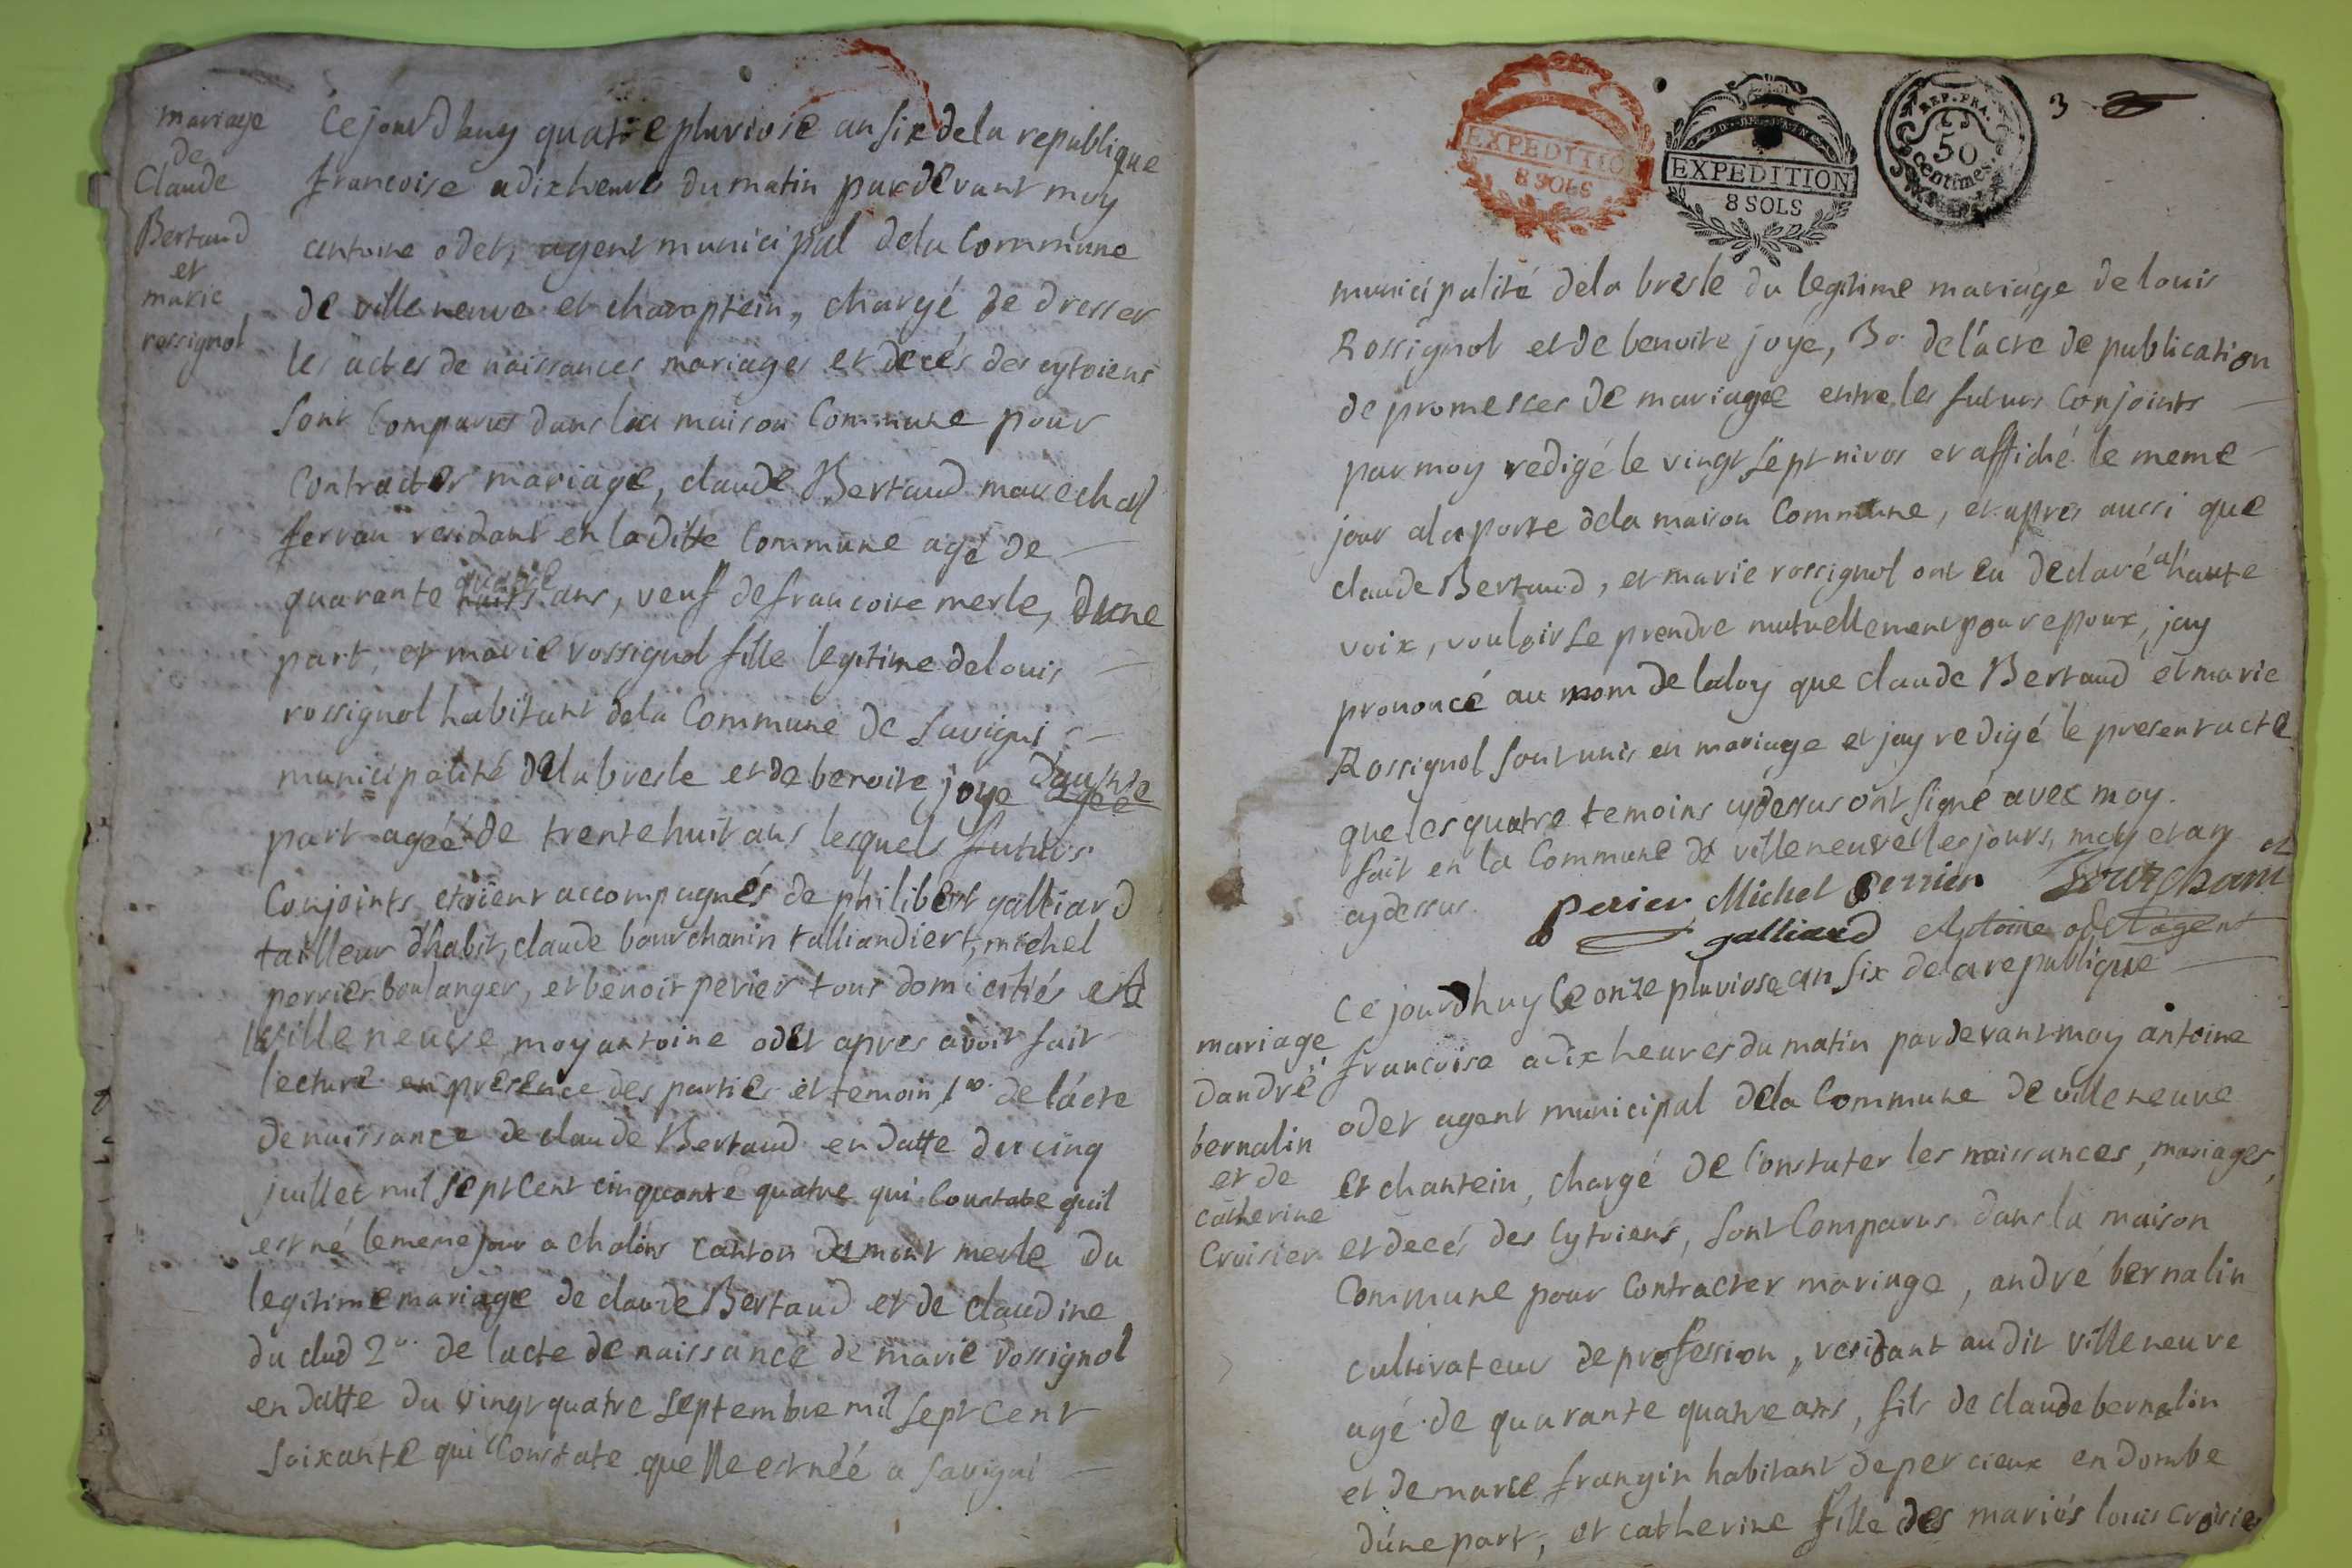 mariage
de
Claude
Bertaud
et
marie
rossignol
Cejourdhuy quatre pluviose an six dela republique
francoise a dix heures du matin pardevant moy
antoine odet, agent municipal dela Commune
de villeneuve et chaneptein, chargé de dresser
les actes de naissances mariages et decés des cytoiens
sont Comparus dans la maison Commune pour
Contracter mariage, claude Bertaud marechal
ferran residant en laditte Commune agé de
quarante quatre ans, veuf de francoise merle, dune
part, et marie rossignol fille legitime de louis
rossignol habitant dela Commune de Savigni
municipalité dela bresle et de benoite joye dautre
part agéé de trente huit ans lesquels futurs
Conjoints etoient accompagnés de philibert galliard
tailleur d'habit, claude bourchanin talliandiert, michel
perrier boulanger, et benoit perier tous domiciliés
villeneuve moy antoine odet apres avoir fait
lecture en presence des parties et temoin, 1º de lácte
de naissance de claude Bertaud en datte du cinq
juillet mil sept Cent cinquante quatre qui Constate quil
est né le meme jour a chaléins canton de mont merle du
legitime mariage de claude Bertaud et de claudine
du clud 2º de lacte de naissance de marie rossignol
en datte du vingt quatre septembre mil sept Cent
soixante qui Constate quelle est néé a savigni
EXPEDITION
8 SOLS
EXPEDITION
8 SOLS
REP. FRA.
50
centimes.
3
municipalité dela bresle du legitime mariage de louis
Rossignol et de benoite joye, 3º de lácte de publication
de promesses de mariage entre les futurs Conjoints
par moy redigé le vingt sept nivos et affiché le meme
jour a la porte dela maison Commune, et apres aussi que
claude Bertaud, et marie rossignol ont eu declaré a haute
voix, vouloir se prendre mutuellement pour epoux, jay
prononcé au nom de la loy que claude Bertaud et marie
Rossignol sont unis en mariage et jay redigé le present acte
que les quatre temoins cy dessus ont signé avec moy.
fait en la Commune de villeneuve les jours, moy et an
cy dessus.
perier Michel Perrier Bourchanin
galliard Antoine odet agent
mariage
dandré
bernalin
et de
catherine
Croisier
Ce jourdhuy le onze pluviose an six dela republique
francoise a dix heures du matin pardevant moy antoine
odet agent municipal dela Commune de villeneuve
et chantein, chargé de Constater les naissances, mariages,
et decés des Cytoiens, sont Comparus dans la maison
Commune pour Contracter mariage, andré bernalin
cultivateur de profession, residant audit villeneuve
agé de quarante quatre ans, fils de claude bernalin
et de marie frangin habitant de percieux en dombe
dúne part, et catherine fille des mariés louis croisier